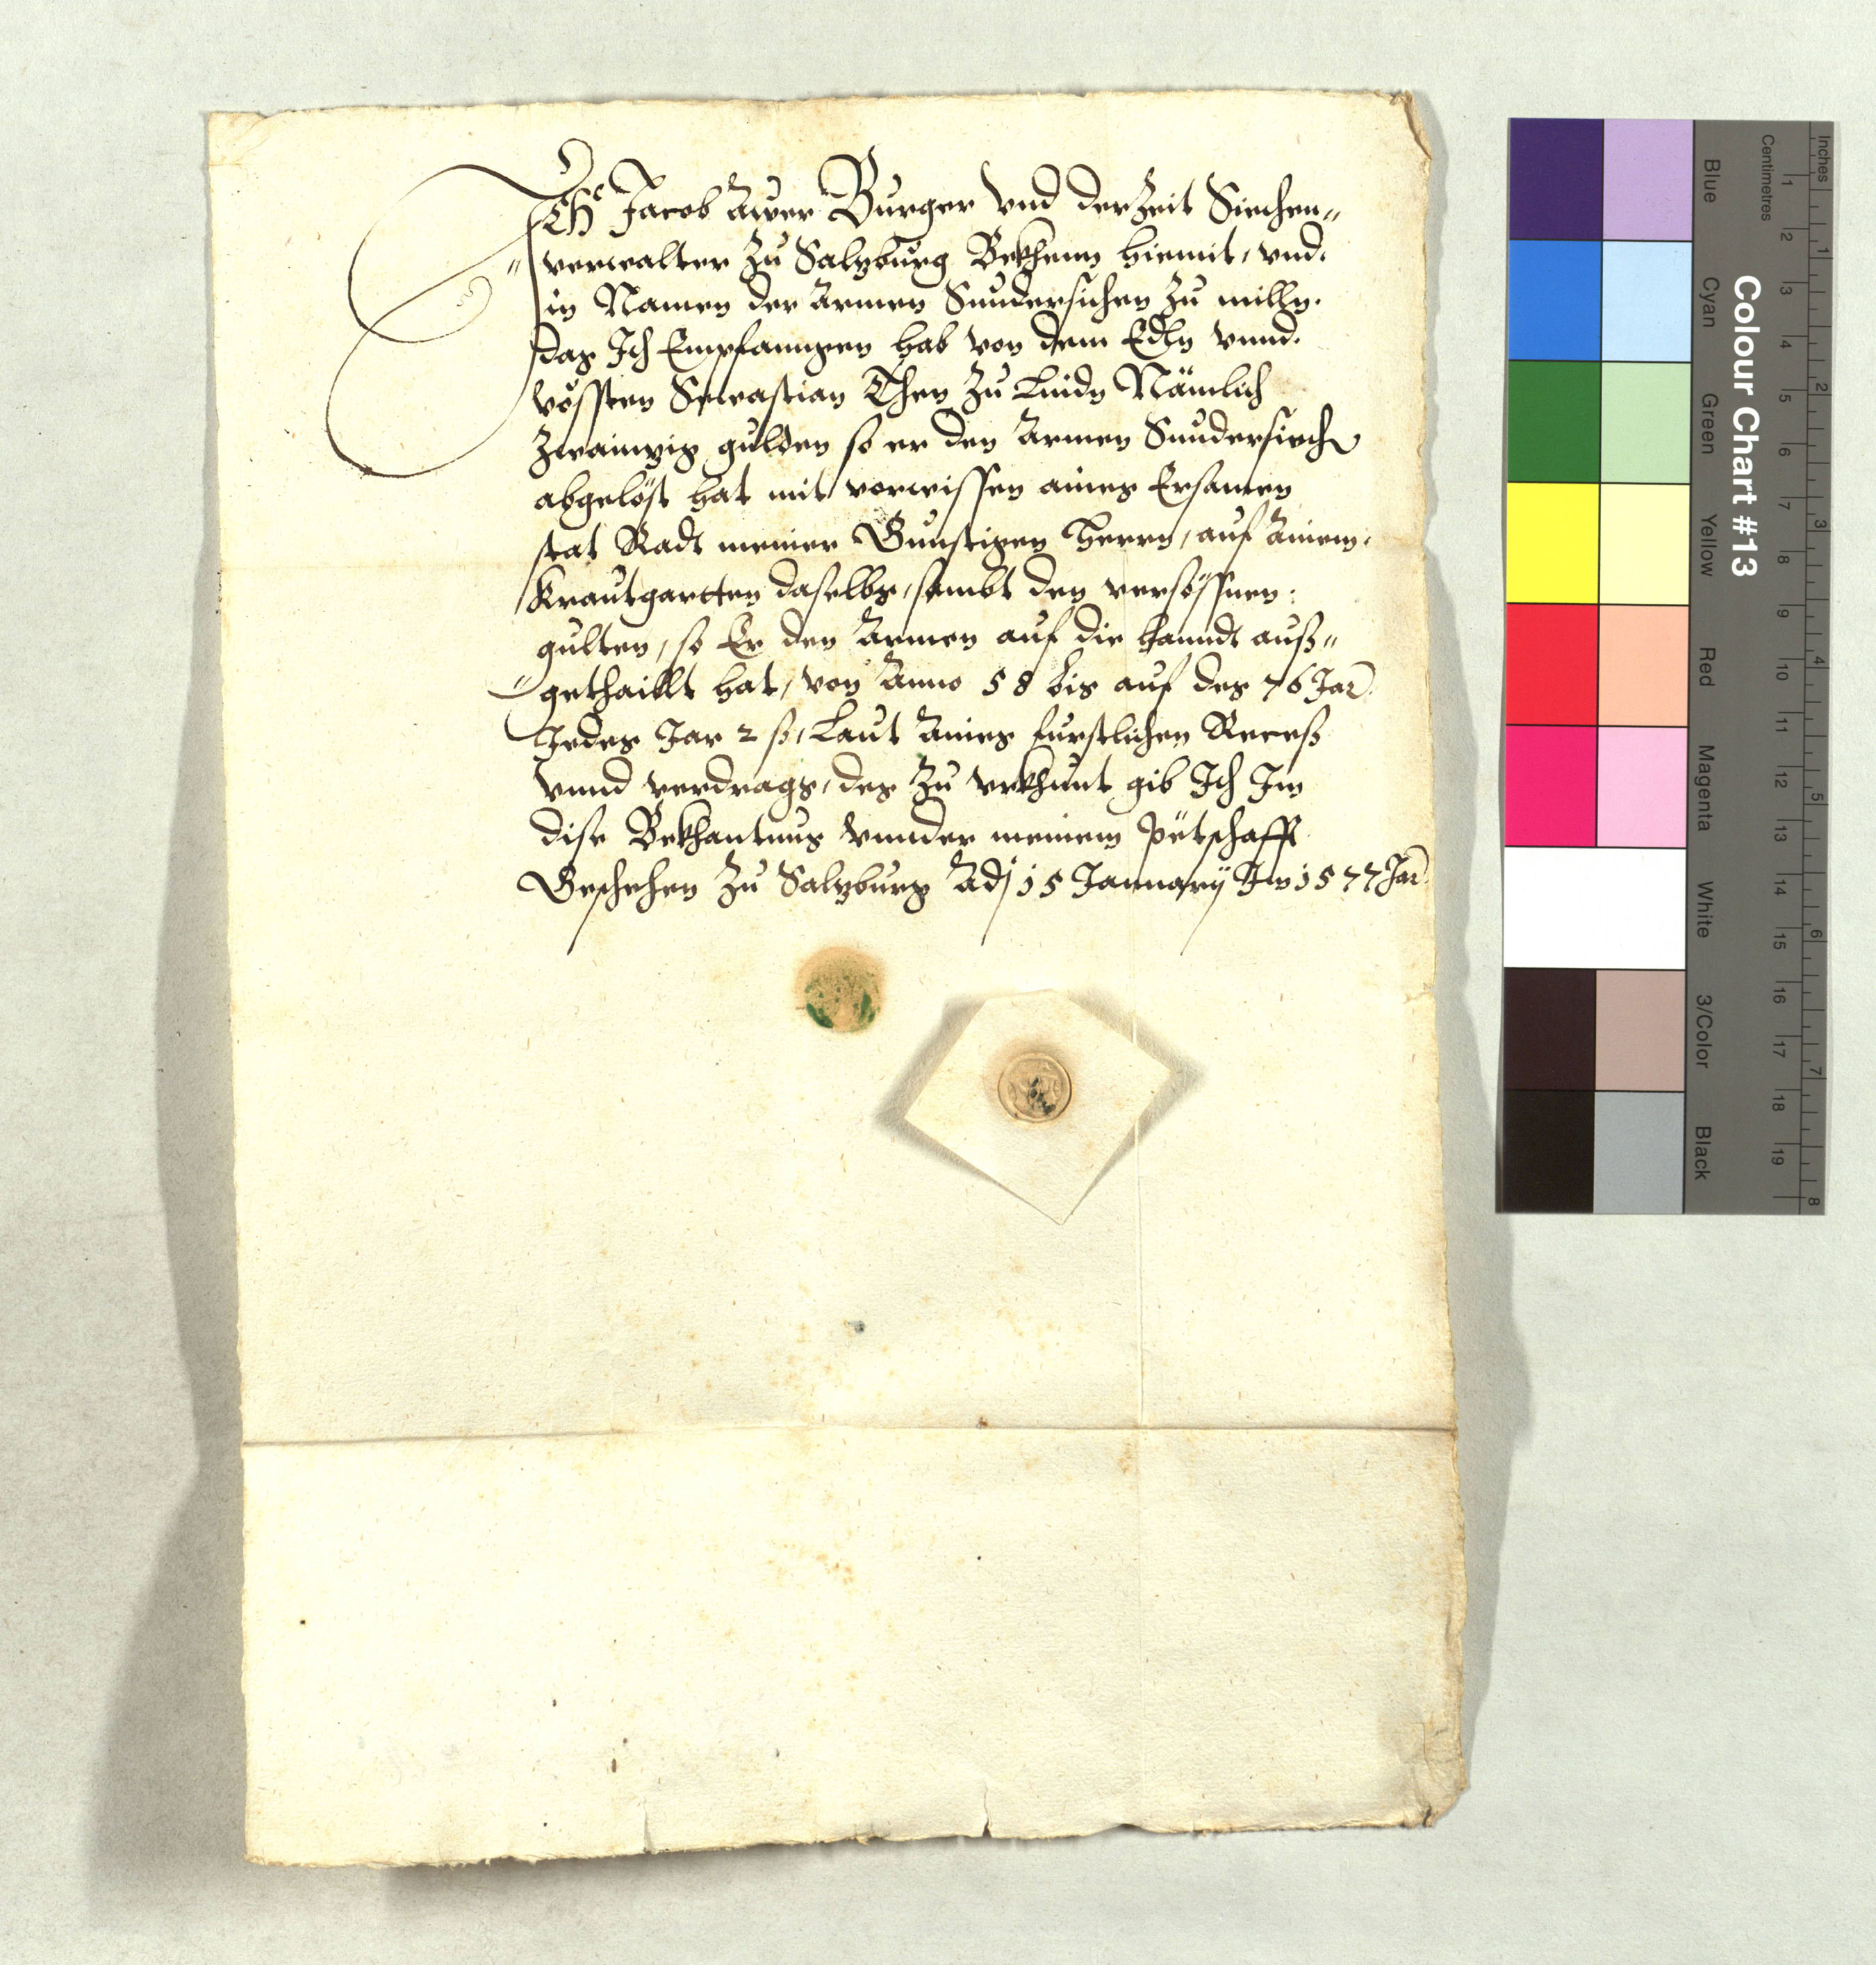 ICH Jacob Awer Burger vnd der Zeit Siechen„
„verwalter zu Salzburg Bekhenn hiemit, vnd.
in Namen der Armen Sundersichen zu milln.
das Ich Empfanngen hab von dem Edln vnnd.
vössten Sewastian Then zu Lindn Nämlich
Zwainzig gulden so er den Armen Sundersiech
abgelöst hat mit vorwissen aines Ersamen
stat Radt meiner Gunstigen Herrn, auf Ainem.
Krautgartten daselbs, sambt den versössnen:
gulten, so Er den Armen auf die hanndt auß„
„gethaillt hat, von Anno 58 bis auf des 76 Jar
Jedes Jar 2 ß, Laut Aines furstlichen Receß
vnnd verdrags, des zu vrkhunt gib Ich Im
dise Bekhantnus vnnder meinem petschafft
Geschehen zu Salzburg Adj 15 January Im 1577 Jar
Colour Chart #13
Blue
Cyan
Green
Yellow
Red
Magenta
White
3/Color
Black
Inches
1 2 3 4 5 6 7 8
Centimetres
1 2 3 4 5 6 7 8 9 10 11 12 13 14 15 16 17 18 19